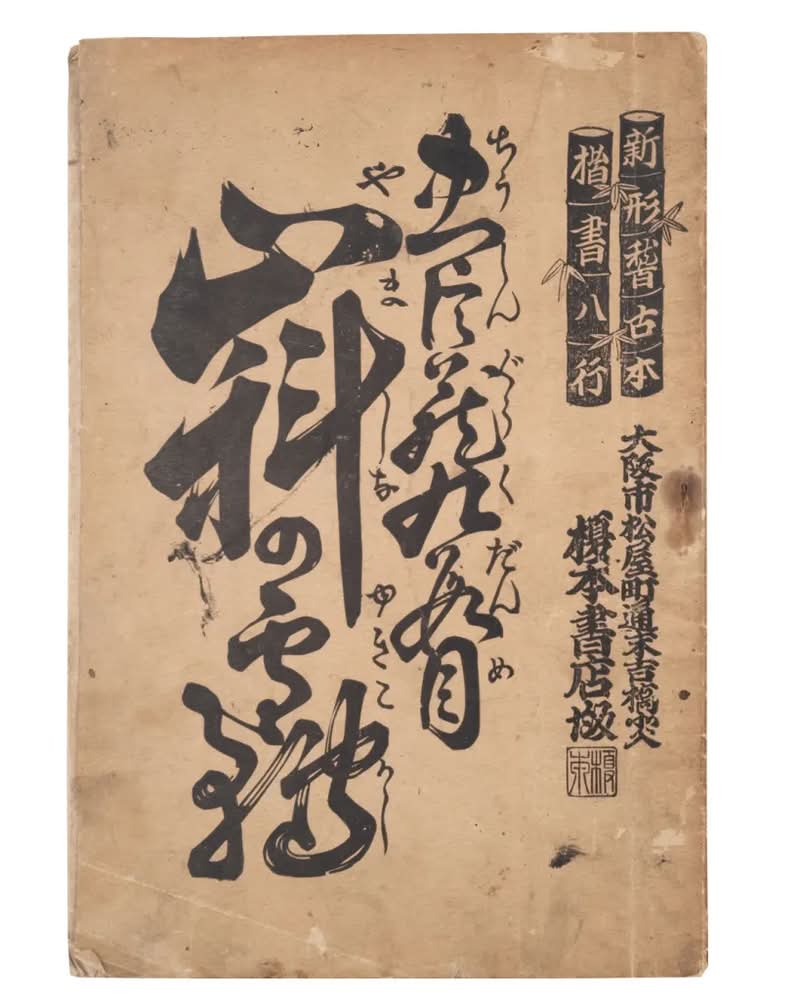 新形稽古本
楷書八行
大阪市松屋町通末吉橋
榎本書店
榎本
ちうしんぐらくだんめ
忠臣蔵九段目
やましな ゆきこかし
山科の雪轉